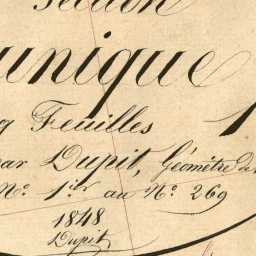 Section
unique
Feuilles 1
par Dupit, Géomètre de
N.º 1.er au N.º 269
1848
Dupit